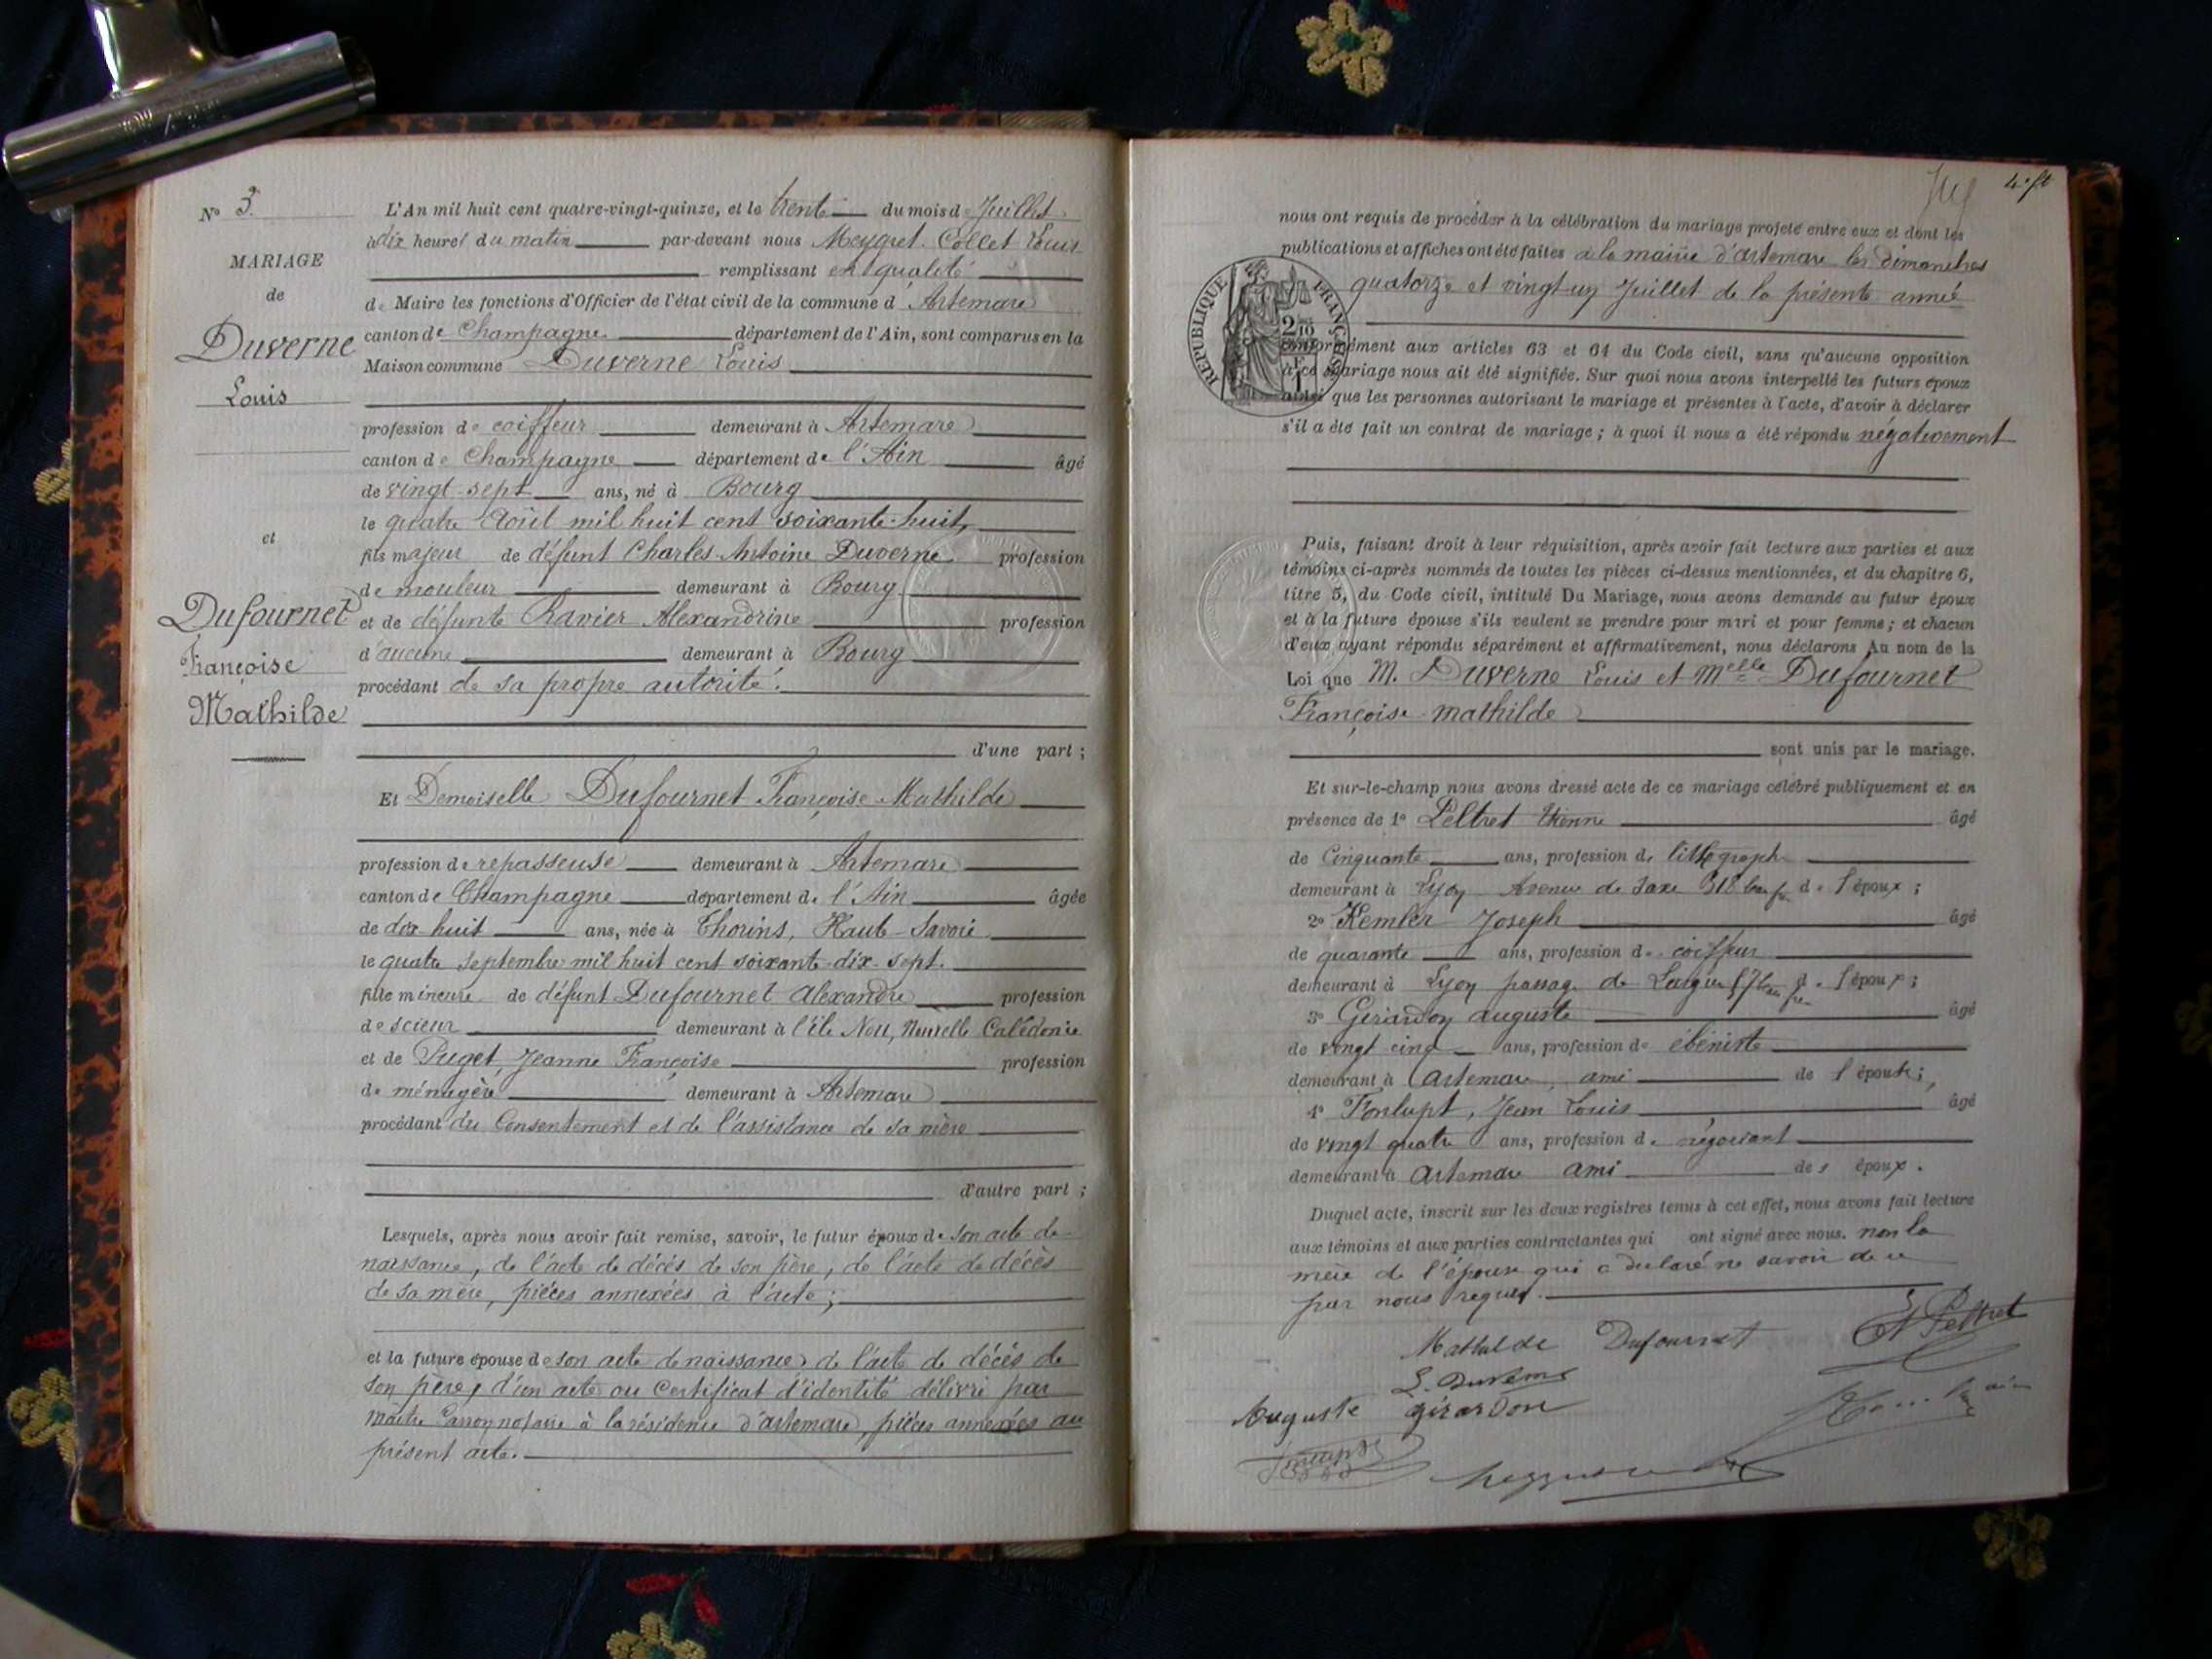 N° 3.
MARIAGE
de
Duverne
Louis
et
Dufournet
Françoise
Mathilde
L'An mil huit cent quatre-vingt-quinze, et le trente du mois de Juillet
à dix heures du matin par-devant nous Meygret Collet Louis
remplissant en qualité
de Maire les fonctions d'Officier de l'état civil de la commune d'Artemare
canton de Champagne département de l'Ain, sont comparus en la
Maison commune Duverne Louis
profession de coiffeur demeurant à Artemare
canton de Champagne département de l'Ain âgé
de vingt-sept ans, né à Bourg
le quatre Août mil huit cent soixante-huit,
fils majeur de défunt Charles-Antoine Duverne profession
de mouleur demeurant à Bourg
et de défunte Ravier Alexandrine profession
d'aucune demeurant à Bourg
procédant de sa propre autorité.
d'une part ;
Et Demoiselle Dufournet Françoise Mathilde
profession de repasseuse demeurant à Artemare
canton de Champagne département de l'Ain âgée
de dix-huit ans, née à Thorins, Haute-Savoie
le quatre septembre mil huit cent soixante-dix-sept.
fille mineure de défunt Dufournet Alexandre profession
de scieur demeurant à l'île Nou, Nouvelle Calédonie
et de Puget, Jeanne Françoise profession
de ménagère demeurant à Artemare
procédant du Consentement et de l'assistance de sa mère
d'autre part ;
Lesquels, après nous avoir fait remise, savoir, le futur époux de son acte de
naissance, de l'acte de décès de son père, de l'acte de décès
de sa mère, pièces annexées à l'acte ;
et la future épouse de son acte de naissance, de l'acte de décès de
son père, d'un acte ou Certificat d'identité délivré par
Maître notaire à la résidence d'artemare, pièces annexées au
présent acte.
nous ont requis de procéder à la célébration du mariage projeté entre eux et dont les
publications et affiches ont été faites à la mairie d'artemare les dimanches
quatorze et vingt-un Juillet de la présente année
RÉPUBLIQUE FRANÇAISE
conformément aux articles 63 et 64 du Code civil, sans qu'aucune opposition
à ce mariage nous ait été signifiée. Sur quoi nous avons interpellé les futurs époux
ainsi que les personnes autorisant le mariage et présentes à l'acte, d'avoir à déclarer
s'il a été fait un contrat de mariage ; à quoi il nous a été répondu négativement
Puis, faisant droit à leur réquisition, après avoir fait lecture aux parties et aux
témoins ci-après nommés de toutes les pièces ci-dessus mentionnées, et du chapitre 6,
titre 5, du Code civil, intitulé Du Mariage, nous avons demandé au futur époux
et à la future épouse s'ils veulent se prendre pour mari et pour femme ; et chacun
d'eux ayant répondu séparément et affirmativement, nous déclarons Au nom de la
Loi que M. Duverne Louis et Melle Dufournet
Françoise mathilde
sont unis par le mariage.
Et sur-le-champ nous avons dressé acte de ce mariage célébré publiquement et en
présence de 1° Peltret Etienne âgé
de Cinquante ans, profession de lithographe
demeurant à Lyon Avenue de Saxe 318 de l'époux ;
2° Kemler Joseph âgé
de quarante ans, profession de coiffeur
demeurant à Lyon passage de de l'époux ;
3° Girardon auguste âgé
de vingt cinq ans, profession de ébéniste
demeurant à Artemare, ami de l'épouse ;
4° Fonlupt, Jean Louis âgé
de vingt quatre ans, profession de négociant
demeurant à artemare ami des époux.
Duquel acte, inscrit sur les deux registres tenus à cet effet, nous avons fait lecture
aux témoins et aux parties contractantes qui ont signé avec nous. non la
mère de l'épouse qui a déclaré ne savoir de ce
par nous requis.
Mathilde Dufournet
E Peltret
L. Duverne
Auguste girardon